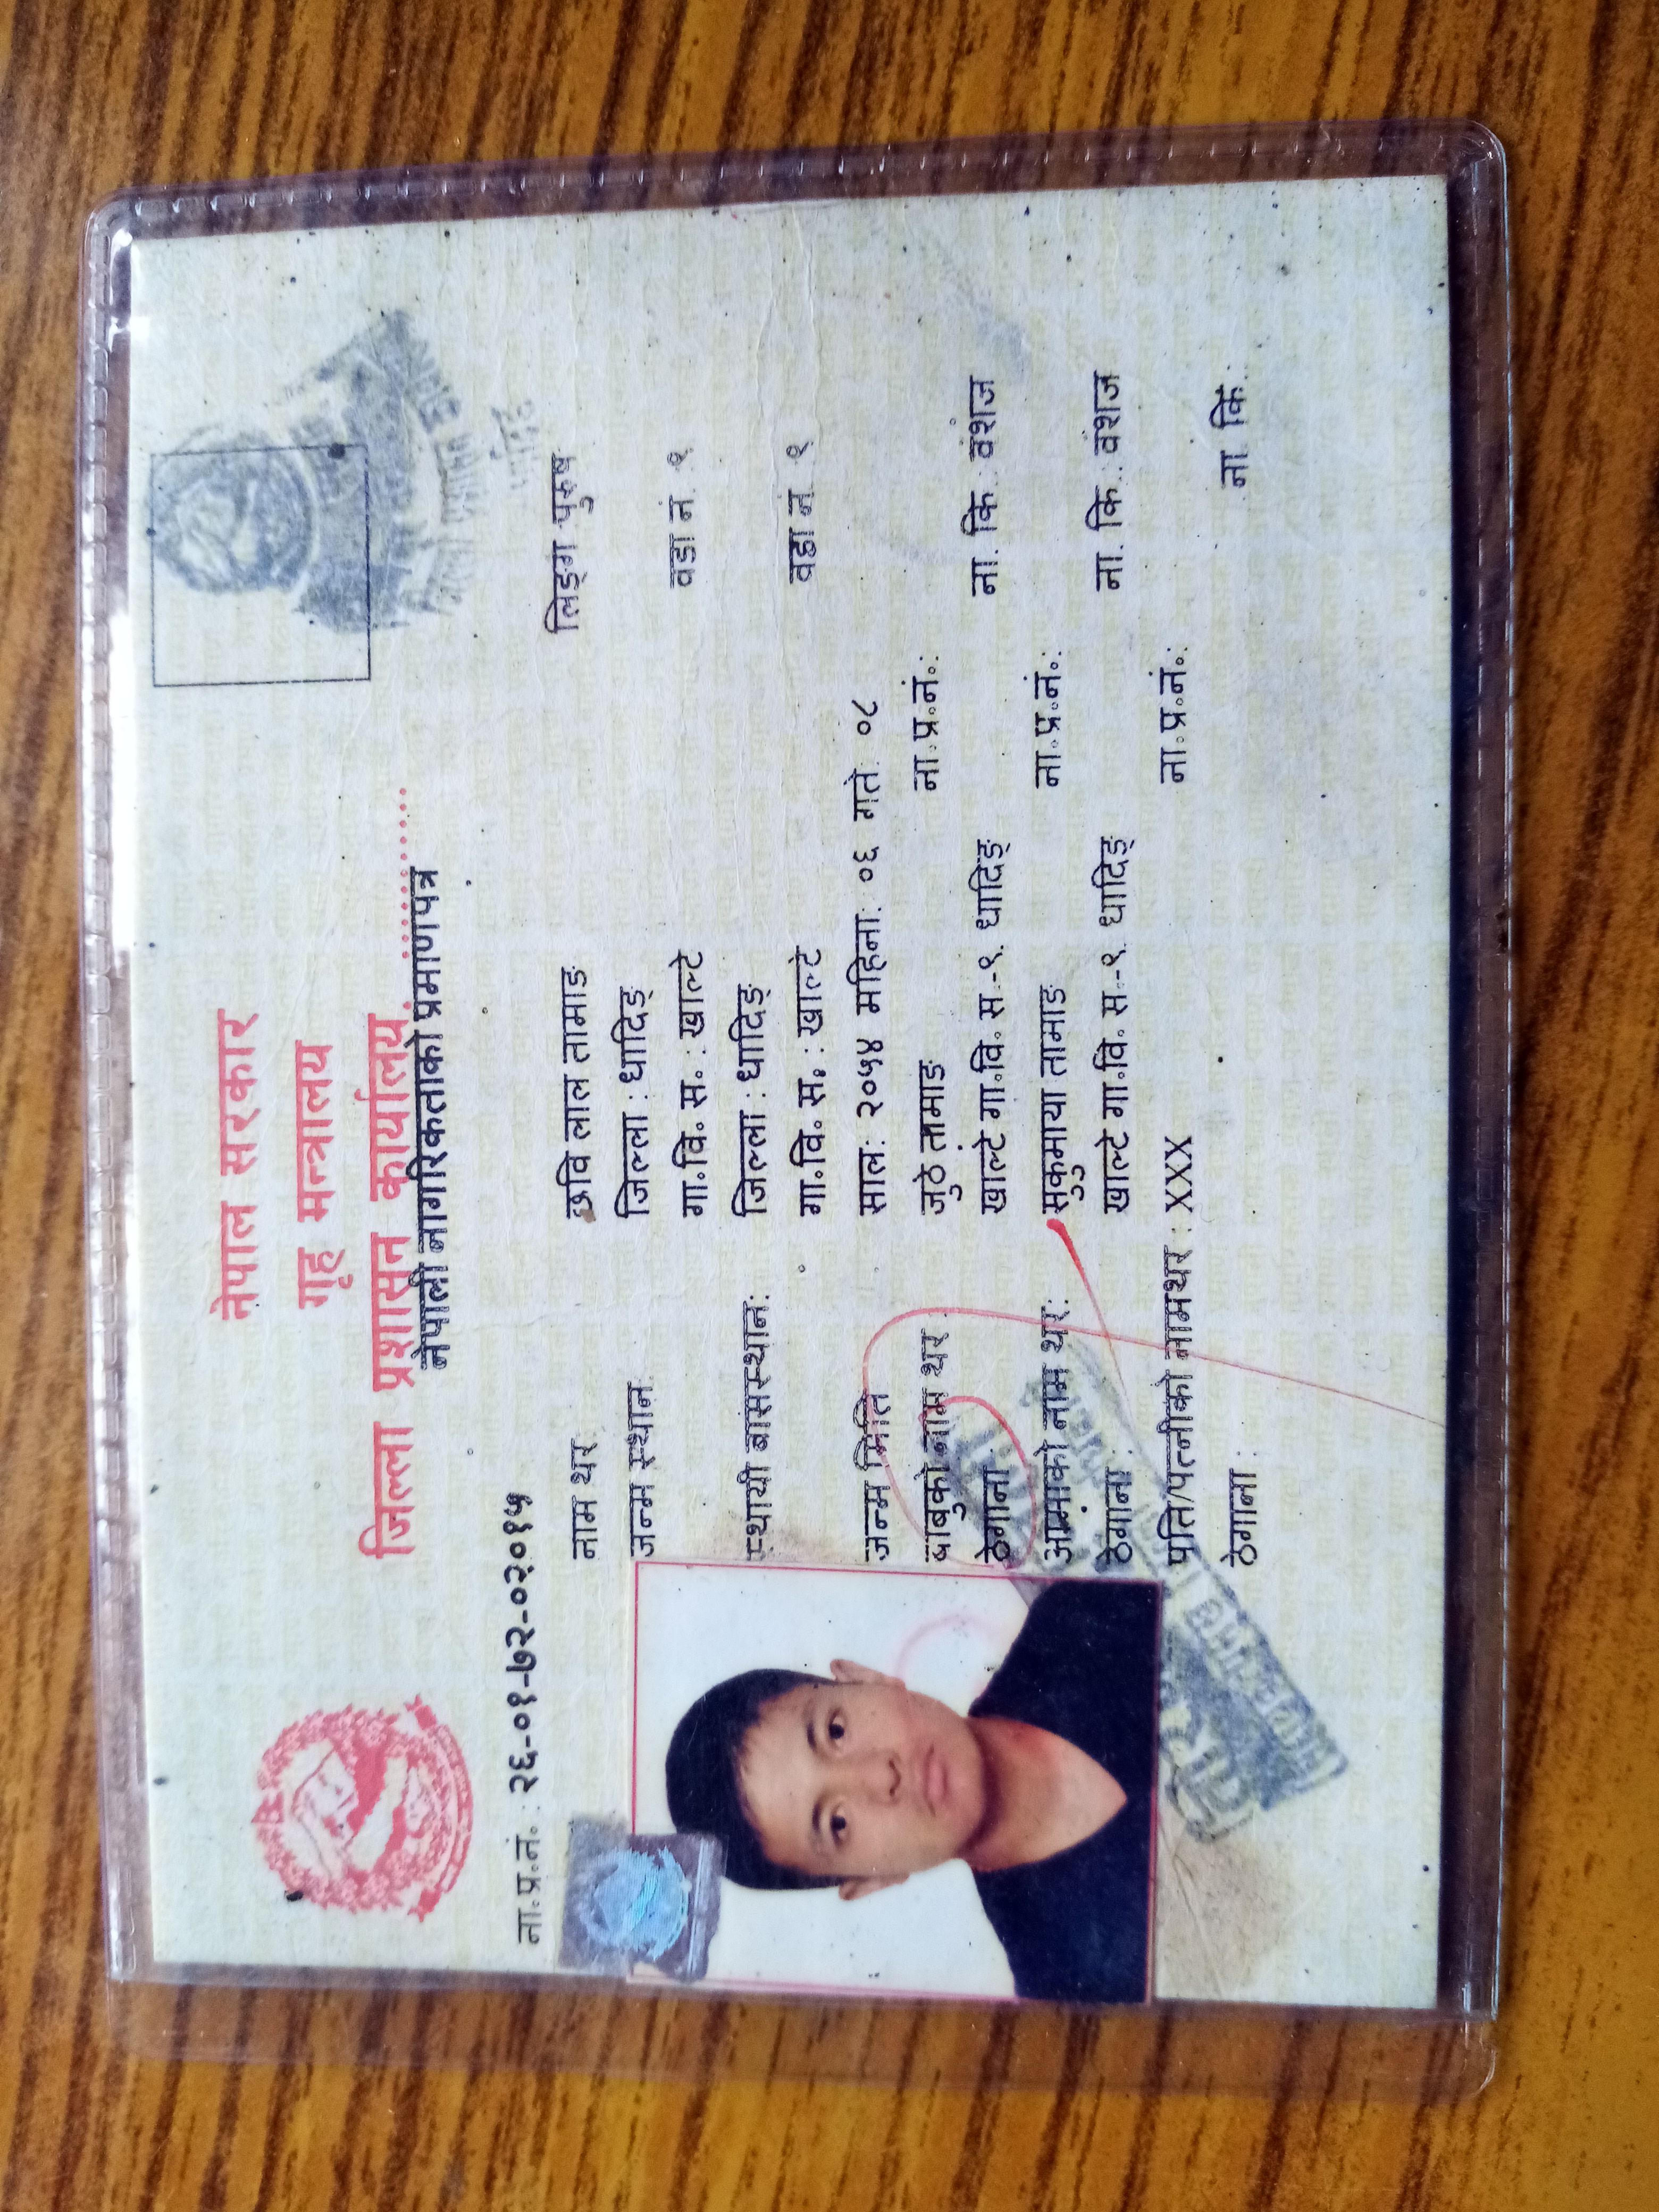 नेपाल सरकार
गृह मन्त्रालय
जिल्ला प्रशासन कार्यालय..................
नेपाली नागरिकताको प्रमाणपत्र
ना.प्र.नं. : २६-०१-७२-०२०१५
नाम थर: छवि लाल तामाङ लिङ्ग पुरुष
जन्म स्थान: जिल्ला : धादिङ्
गा.वि. स. : खाल्टे वडा नं. १
स्थायी बासस्थान: जिल्ला : धादिङ्
गा.वि. स. : खाल्टे वडा नं. १
जन्म मिति साल: २०५४ महिना: ०६ गते: ०८
बाबुको नाम थर : जुठे तामाङ ना.प्र.नं.:
ठेगाना खाल्टे गा.वि. स.-१, धादिङ् ना. कि. : वंशज
आमाको नाम थर: सुकुमाया तामाङ ना.प्र.नं.:
ठेगाना : खाल्टे गा.वि. स.-१, धादिङ् ना. कि. : वंशज
पति/पत्नीको नामथर : XXX ना.प्र.नं.:
ठेगाना : ना. कि. :